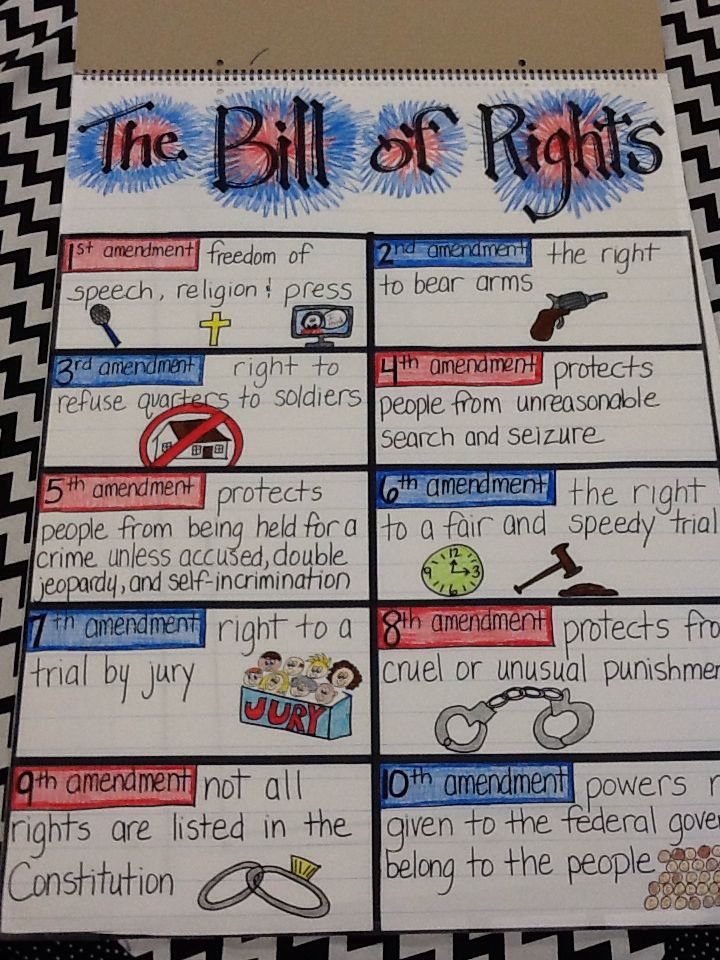 The Bill of Rights
1st amendment freedom of
speech, religion & press
2nd amendment the right
to bear arms
3rd amendment right to
refuse quarters to soldiers
4th amendment protects
people from unreasonable
search and seizure
5th amendment protects
people from being held for a
crime unless accused, double
jeopardy, and self-incrimination
6th amendment the right
to a fair and speedy trial
12
9 3
6
7th amendment right to a
trial by jury
JURY
8th amendment protects fro
cruel or unusual punishmen
9th amendment not all
rights are listed in the
Constitution
10th amendment powers n
given to the federal gover
belong to the people